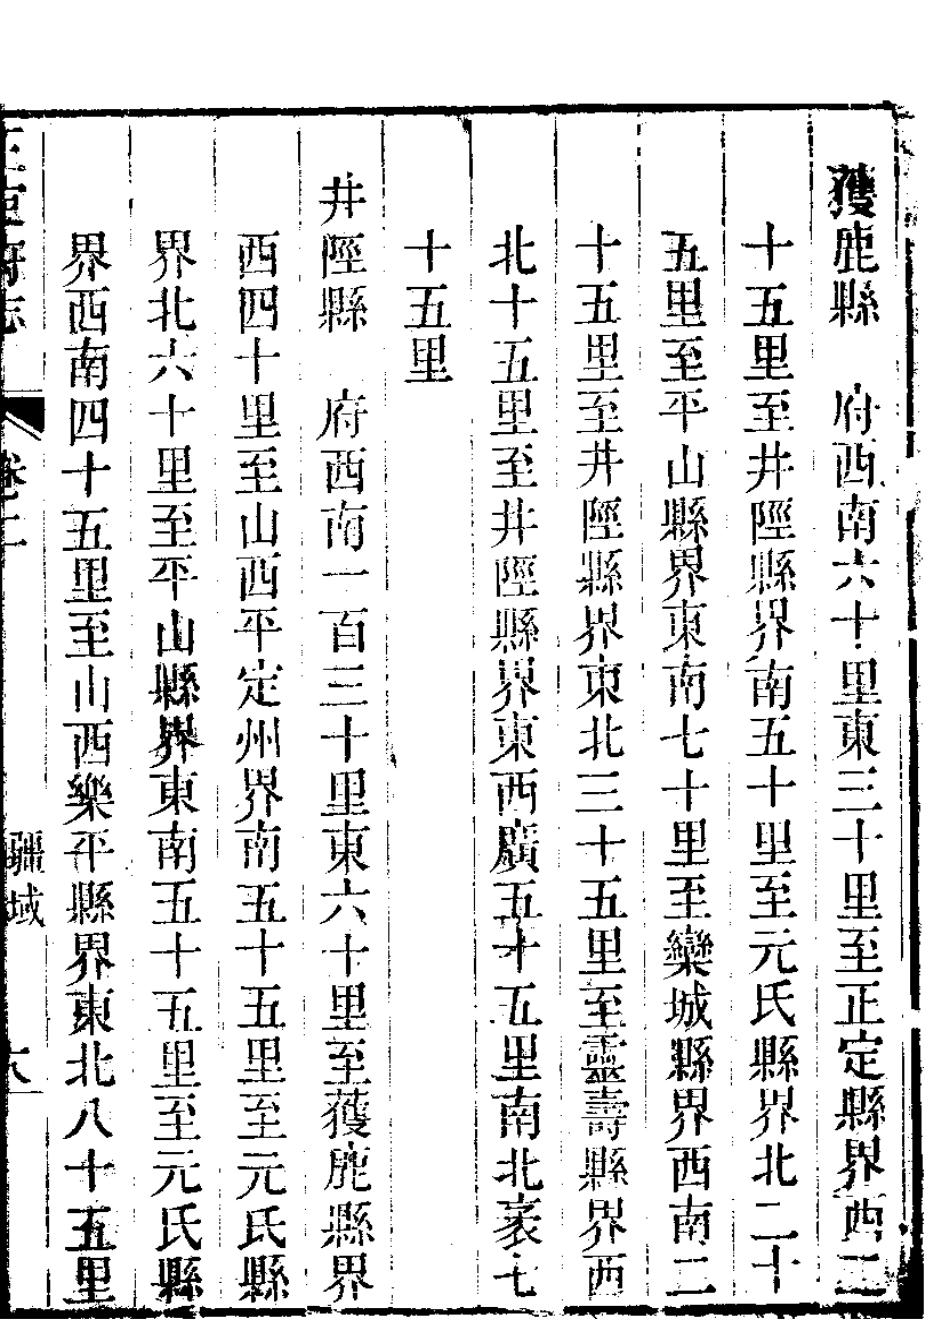 獲鹿縣　府西南六十里東三十里至正定縣界西二
十五里至井陘縣界南五十里至元氏縣界北二十
五里至平山縣界東南七十里至欒城縣界西南二
十五里至井陘縣界東北三十五里至靈壽縣界西
北十五里至井陘縣界東西廣五十五里南北袤七
十五里
井陘縣　府西南一百三十里東六十里至獲鹿縣界
西四十里至山西平定州界南五十五里至元氏縣
界北六十里至平山縣界東南五十五里至元氏縣
界西南四十五里至山西樂平縣界東北八十五里
正定府志　卷二　疆域　六